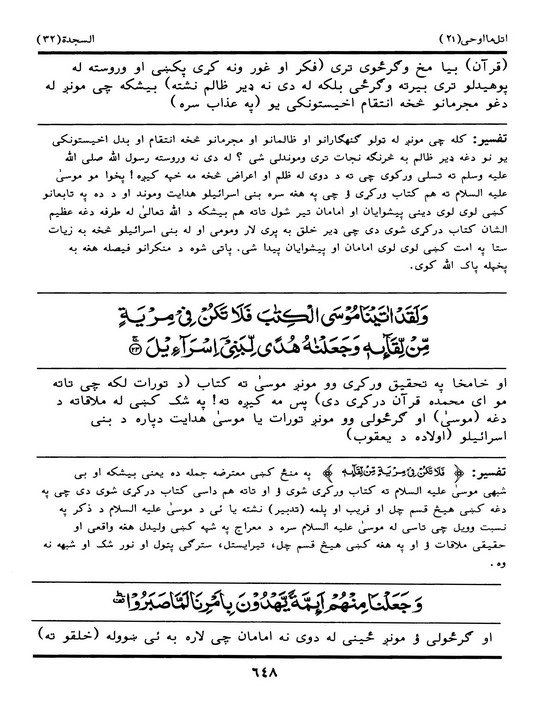 اتل مااوحی (۲۱)
السجدة (۳۲)
(قرآن) بیا مخ وګرځوی تری (فکر او غور ونه کړی پکښی او وروسته له
پوهیدلو تری بیرته وګرځی بلکه له دی نه ډیر ظالم نشته) بیشکه چی مونږ له
دغو مجرمانو څخه انتقام اخیستونکی یو (په عذاب سره)
تفسیر: کله چی مونږ له تولو ګنهګارانو او ظالمانو او مجرمانو څخه انتقام او بدل اخیستونکی
یو نو دغه ډیر ظالم به څرنګه نجات تری وموندلی شی ؟ له دی نه وروسته رسول الله صلی الله
علیه وسلم ته تسلی ورکوی چی ته د دوی له ظلم او اعراض څخه مه خپه کیږه! پخوا مو موسیٰ
علیه السلام ته هم کتاب ورکړی ؤ چی په هغه سره بنی اسرائیلو هدایت وموند او د ده په تابعانو
کښی لوی لوی دینی پیشوایان او امامان تیر شول تاته هم بیشکه د الله تعالیٰ له طرفه دغه عظیم
الشان کتاب درکړی شوی دی چی ډیر خلق به پری لار ومومی او له بنی اسرائیلو څخه به زیات
ستا په امت کښی لوی لوی امامان او پیشوایان پیدا شی. پاتی شوه د منکرانو فیصله هغه به
پخپله پاک الله کوی.
وَلَقَدْ اٰتَیْنَا مُوْسَی الْکِتٰبَ فَلَا تَکُنْ فِیْ مِرْیَةٍ
مِّنْ لِّقَآئِهٖ وَجَعَلْنٰهُ هُدًی لِّبَنِیْۤ اِسْرَآءِیْلَ ﴿۲۳﴾
او خامخا په تحقیق ورکړی وو مونږ موسیٰ ته کتاب (د تورات لکه چی تاته
مو ای محمده قرآن درکړی دی) پس مه کیږه ته! په شک کښی له ملاقاته د
دغه (موسیٰ) او ګرځولی وو مونږ تورات یا موسیٰ هدایت دپاره د بنی
اسرائیلو (اولاده د یعقوب)
تفسیر: ﴿ فَلَا تَکُنْ فِیْ مِرْیَةٍ مِّنْ لِّقَآئِهٖ ﴾ په منځ کښی معترضه جمله ده یعنی بیشکه او بی
شبهی موسیٰ علیه السلام ته کتاب ورکړی شوی ؤ او تاته هم داسی کتاب درکړی شوی دی چی په
دغه کښی هیڅ قسم چل او فریب او پلمه (تدبیر) نشته یا ئی د موسیٰ علیه السلام د ذکر په
نسبت وویل چی تاسی له موسیٰ علیه السلام سره د معراج په شپه کښی ولیدل هغه واقعی او
حقیقی ملاقات ؤ او په هغه کښی هیڅ قسم چل، تیرایستل، سترګی پتول او نور شک او شبهه نه
وه.
وَجَعَلْنَا مِنْهُمْ اَئِمَّةً یَّهْدُوْنَ بِاَمْرِنَا لَمَّا صَبَرُوْا
او ګرځولی ؤ مونږ ځینی له دوی نه امامان چی لاره به ئی ښووله (خلقو ته)
٦٤٨